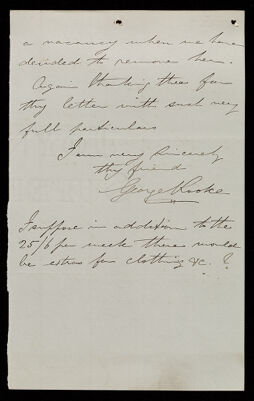 a vacancy when we have
decided to remove her.
Again thanking thee for
thy letter with such very
full particulars
I am very sincerely
thy friend
George Rooke
I suppose in addition to the
25/6 per week there would
be extras for clothing &c. ?